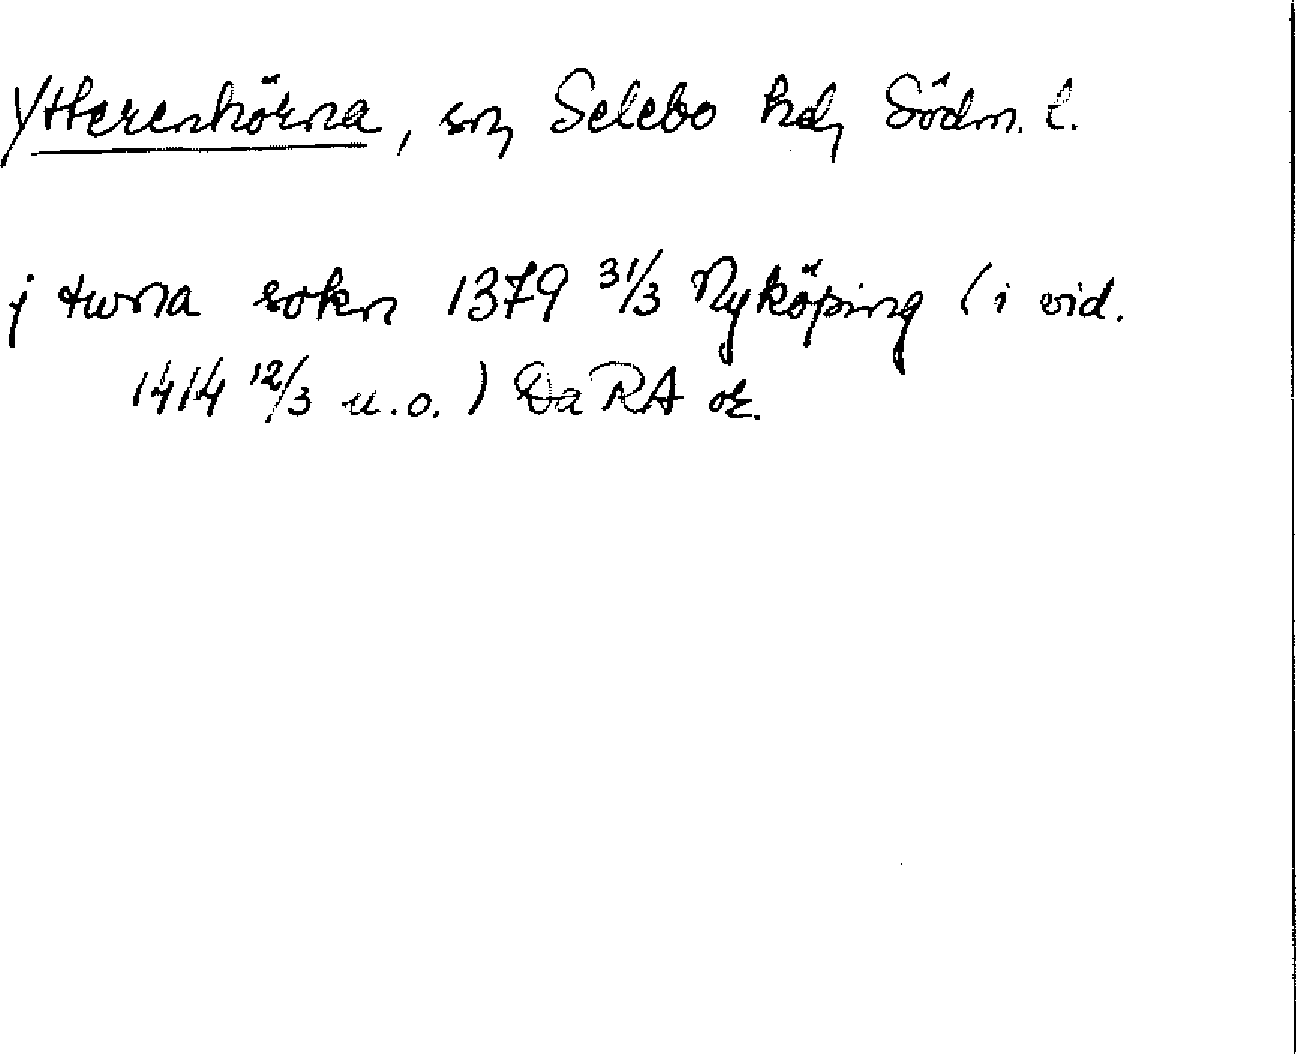 Ytterenhörna, sn, Selebo hd, Södm. l.
j turna sokn 1379 31/3 Nyköping (i vid.
1414 12/3 u.o.) Da RA or.